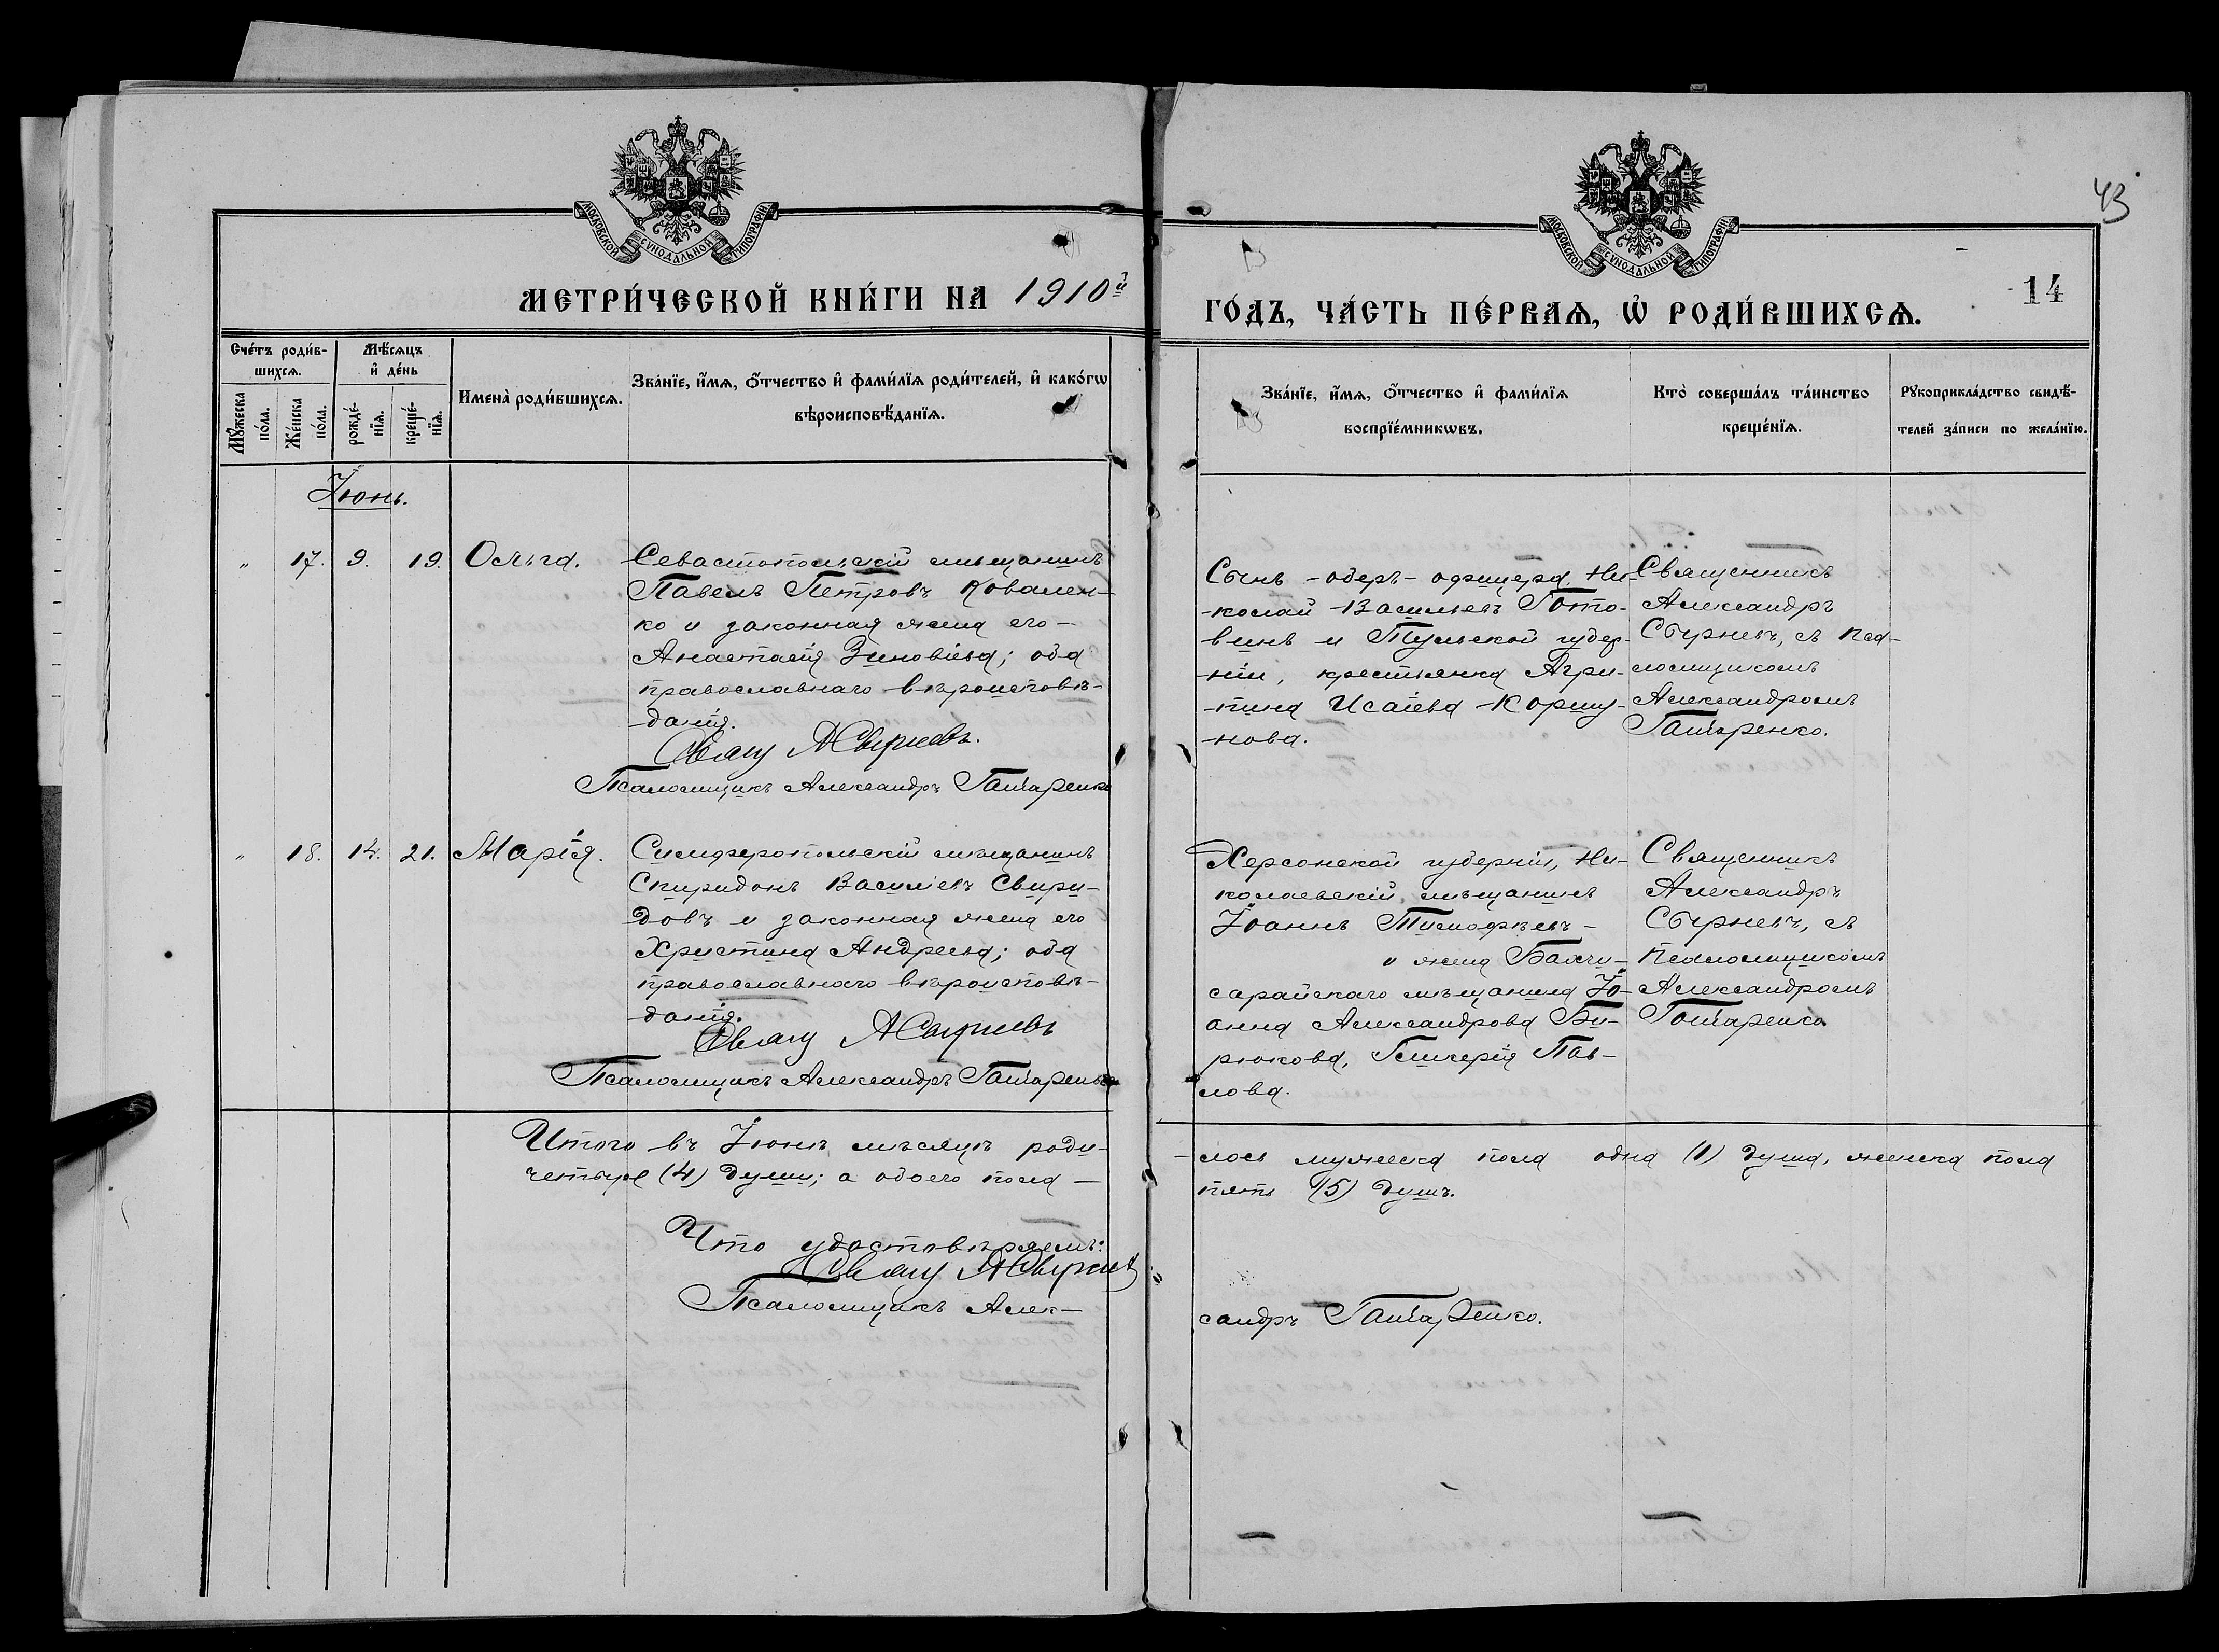 МОСКОВСКОЙ СѴНОДАЛЬНОЙ ТИПОГРАФІИ
МОСКОВСКОЙ СѴНОДАЛЬНОЙ ТИПОГРАФІИ
43
14
МЕТРИ́ЧЕСКОЙ КНИ́ГИ НА 1910й
ГО́ДЪ, ЧА́СТЬ ПЕ́РВАѦ, Ѡ҆ РОДИ́ВШИХСѦ.
Сче́тъ роди́в-
шихсѧ.
Мꙋ́жеска по́ла.
Же́нска по́ла.
Мѣ́сѧцъ
и҆ де́нь
рожде́-
нїѧ.
креще́-
нїѧ.
Имена̀ роди́вшихсѧ.
Зва́нїе, и҆́мѧ, ѻ҆́тчество и҆ фами́лїѧ роди́телей, и҆ како́гѡ
вѣроисповѣ́данїѧ.
Зва́нїе, и҆́мѧ, ѻ҆́тчество и҆ фами́лїѧ
воспрїе́мникѡвъ.
Кто̀ соверша́лъ та́инство
креще́нїѧ.
Рꙋкоприкла́дство свидѣ́-
телей за́писи по жела́нїю.
Іюнь.
" 17. 9. 19. Ольга.
Севастопольскій мѣщанинъ
Павелъ Петровъ Ковален-
ко и законная жена его -
Анастасія Зиновіева; оба
православнаго вѣроисповѣ-
данія.
Свящ АСырневъ.
Псаломщикъ Александръ Гатаренко
Сынъ - оберъ - офицера, Ни-
колай Васильевъ Гото-
винъ и Тульской губер-
ніи, крестьянка Агри-
пина Исаіева Коршу-
нова.
Священникъ
Александръ
Сырневъ, съ пса-
ломщикомъ
Александромъ
Гатаренко.
" 18. 14. 21. Марія.
Симферопольскій мѣщанинъ
Спиридонъ Василіевъ Свири-
довъ и законная жена его
Христина Андреева; оба
православнаго вѣроисповѣ-
данія.
Свящ АСырневъ
Псаломщикъ Александръ Гатаренко
Херсонской губерніи, Ни-
колаевскій мѣщанинъ
Іоаннъ Тимофѣевъ -
и жена Бахчи-
сарайскаго мѣщанина Іо-
анна Александрова Би-
рюкова, Гликерія Пав-
лова.
Священникъ
Александръ
Сырневъ, съ
псаломщикомъ
Александромъ
Гатаренко
Итого въ Іюнѣ мѣсяцѣ роди-
лось мужеска пола одна (1) душа, женска пола
четыре (4) души; а обоего пола -
пять (5) душъ.
Что удостовѣряемъ:
Свящ АСырнев
Псаломщикъ Алек-
сандръ Гатаренко.